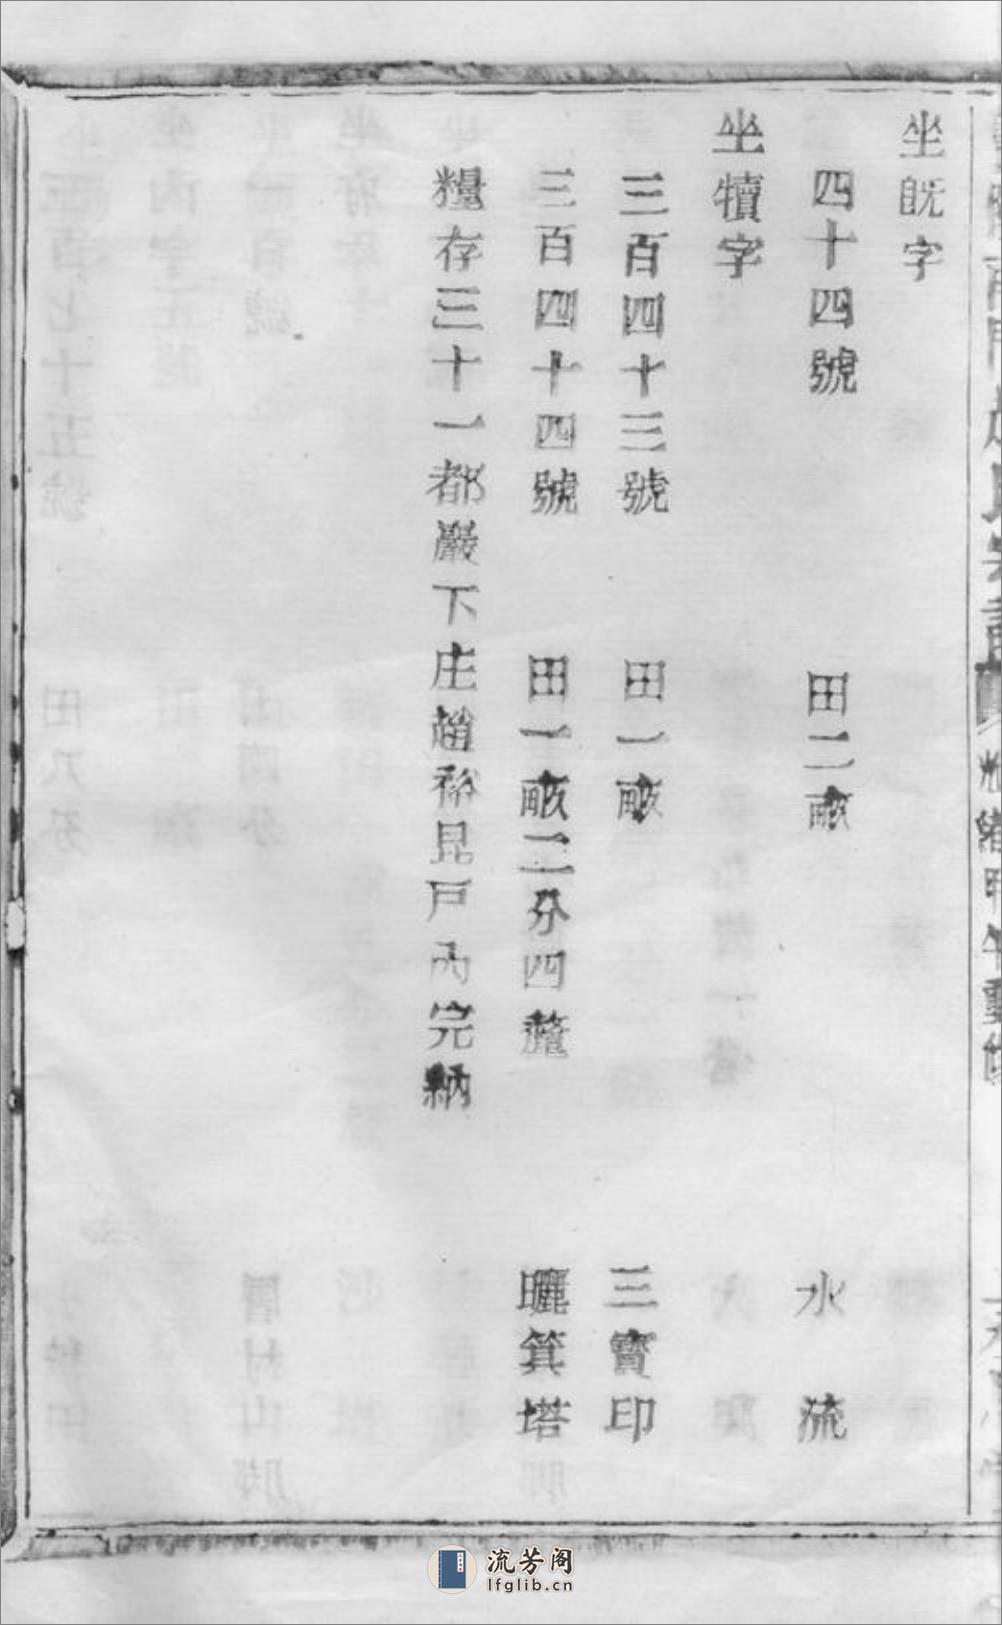 坐旣字
四十四號 田二畝 水流
坐犢字
三百四十三號 田一畝 三寶印
三百四十四號 田一畝二分四釐 曬箕塔
糧存三十一都嚴下庄趙裕昆戶內完納
光緒甲午重修
流芳阁
lfglib.cn